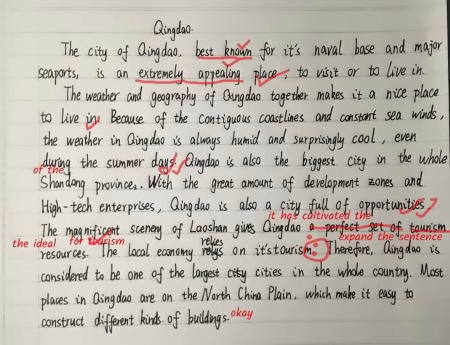 Qingdao.
The city of Qingdao, best known for it's naval base and major
seaports, is an extremely appealing place, to visit or to live in.
The weather and geography of Qingdao together makes it a nice place
to live in. Because of the contiguous coastlines and constant sea winds,
the weather in Qingdao is always humid and surprisingly cool, even
during the summer days. Qingdao is also the biggest city in the whole
of the
Shandong provinces. With the great amount of development zones and
High-tech enterprises, Qingdao is also a city full of opportunities.
it has cultivated the
The magnificent scenery of Laoshan gives Qingdao a perfect set of tourism
the ideal for tourism expand the sentence
resources. The local economy relies on it's tourism. Therefore, Qingdao is
considered to be one of the largest city cities in the whole country. Most
places in Qingdao are on the North China Plain, which make it easy to
construct different kinds of buildings. okay